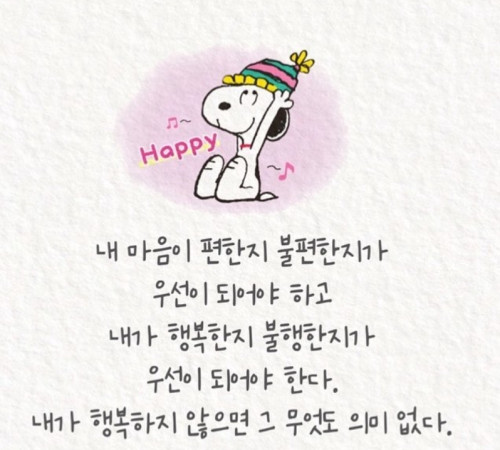 Happy
내 마음이 편한지 불편한지가
우선이 되어야 하고
내가 행복한지 불행한지가
우선이 되어야 한다.
내가 행복하지 않으면 그 무엇도 의미 없다.